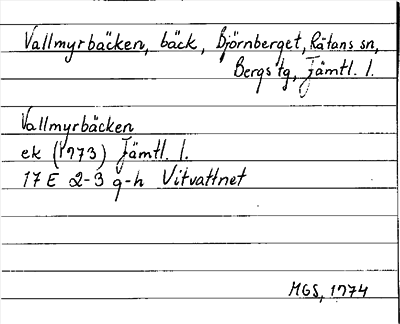 Vallmyrbäcken, bäck, Björnberget, Rätans sn,
Bergs tg, Jämtl. l.
Vallmyrbäcken
ek (1973) Jämtl. l.
17 E 2-3 g-h Vitvattnet
MGS, 1974